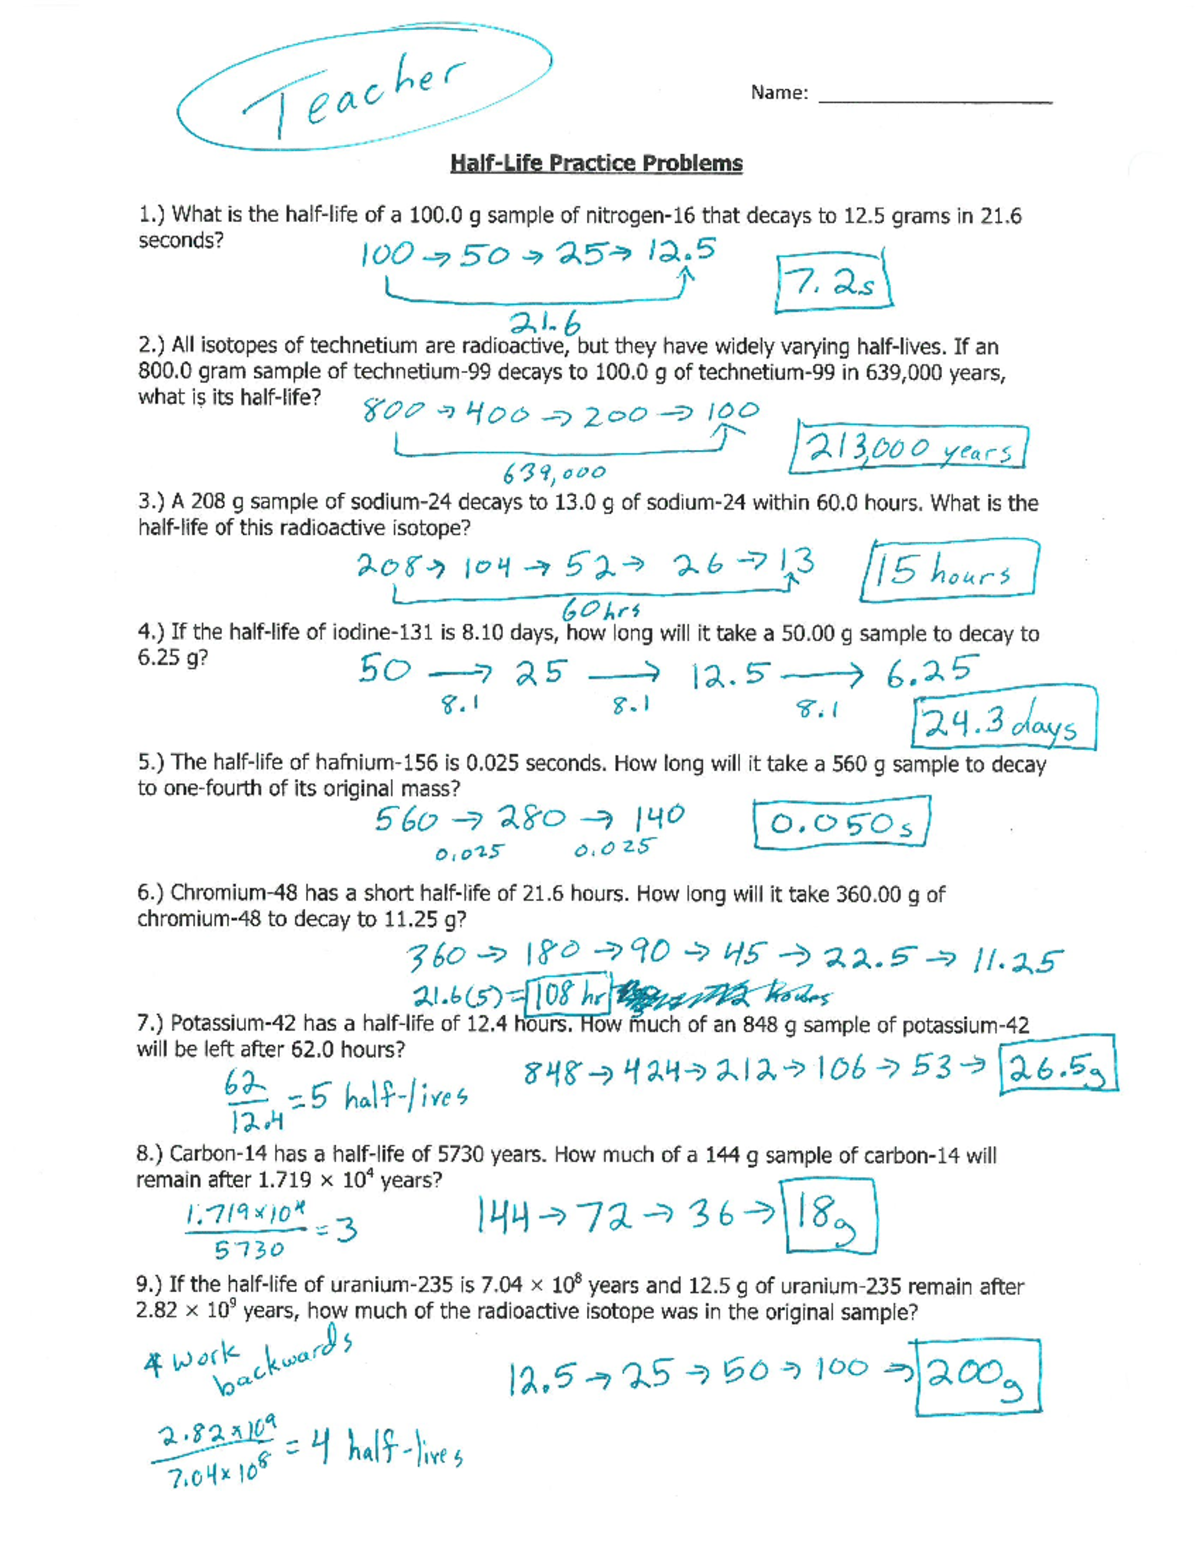 Teacher
Name:
Half-Life Practice Problems
1.) What is the half-life of a 100.0 g sample of nitrogen-16 that decays to 12.5 grams in 21.6
seconds?
100 → 50 → 25 → 12.5
7.2s
21.6
2.) All isotopes of technetium are radioactive, but they have widely varying half-lives. If an
800.0 gram sample of technetium-99 decays to 100.0 g of technetium-99 in 639,000 years,
what is its half-life?
800 → 400 → 200 → 100
213,000 years
639,000
3.) A 208 g sample of sodium-24 decays to 13.0 g of sodium-24 within 60.0 hours. What is the
half-life of this radioactive isotope?
208 → 104 → 52 → 26 → 13
15 hours
60 hrs
4.) If the half-life of iodine-131 is 8.10 days, how long will it take a 50.00 g sample to decay to
6.25 g?
50 → 25 → 12.5 → 6.25
8.1 8.1 8.1
24.3 days
5.) The half-life of hafnium-156 is 0.025 seconds. How long will it take a 560 g sample to decay
to one-fourth of its original mass?
560 → 280 → 140
0.050s
0.025 0.025
6.) Chromium-48 has a short half-life of 21.6 hours. How long will it take 360.00 g of
chromium-48 to decay to 11.25 g?
360 → 180 → 90 → 45 → 22.5 → 11.25
21.6(5) = 108 hr
7.) Potassium-42 has a half-life of 12.4 hours. How much of an 848 g sample of potassium-42
will be left after 62.0 hours?
848 → 424 → 212 → 106 → 53 → 26.5g
62
12.4 = 5 half-lives
8.) Carbon-14 has a half-life of 5730 years. How much of a 144 g sample of carbon-14 will
remain after 1.719 × 10⁴ years?
144 → 72 → 36 → 18g
1.719×10⁴
5730 = 3
9.) If the half-life of uranium-235 is 7.04 × 10⁸ years and 12.5 g of uranium-235 remain after
2.82 × 10⁹ years, how much of the radioactive isotope was in the original sample?
* work
backwards
12.5 → 25 → 50 → 100 → 200g
2.82×10⁹
7.04×10⁸ = 4 half-lives